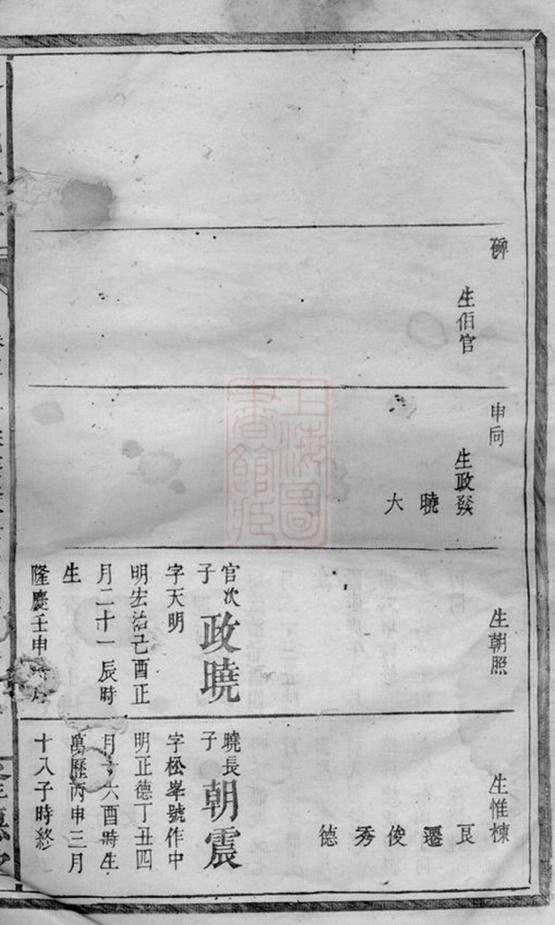 碑
生伯官
申同
生政發
曉
大
生朝照
官次子政曉
字天明
明宏治己酉正
月二十一辰時
生
隆慶壬申
生惟棟
良
遷
俊
秀
德
曉長子朝震
字松峯號作中
明正德丁丑四
月十六酉時生
萬歷丙申三月
十八子時終
上海圖書館藏